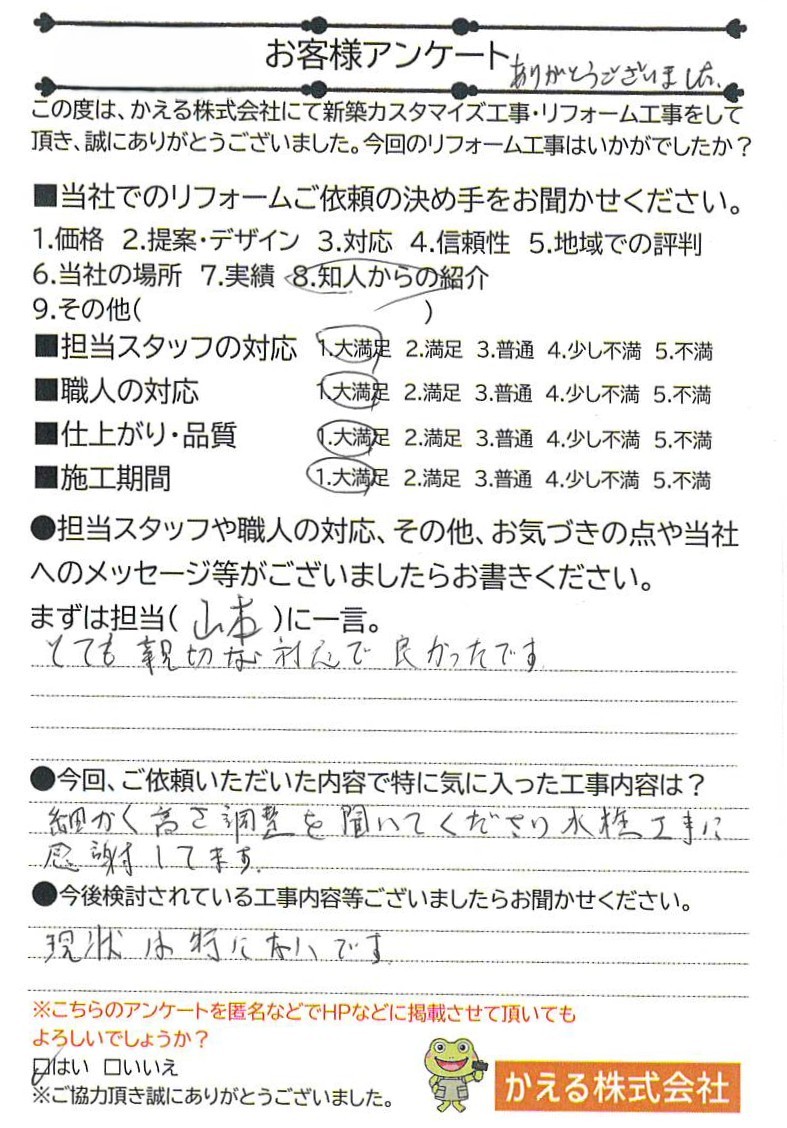 お客様アンケート
ありがとうございました。
この度は、かえる株式会社にて新築カスタマイズ工事・リフォーム工事をして
頂き、誠にありがとうございました。今回のリフォーム工事はいかがでしたか？
■当社でのリフォームご依頼の決め手をお聞かせください。
1.価格 2.提案・デザイン 3.対応 4.信頼性 5.地域での評判
6.当社の場所 7.実績 8.知人からの紹介
9.その他( )
■担当スタッフの対応 1.大満足 2.満足 3.普通 4.少し不満 5.不満
■職人の対応 1.大満足 2.満足 3.普通 4.少し不満 5.不満
■仕上がり・品質 1.大満足 2.満足 3.普通 4.少し不満 5.不満
■施工期間 1.大満足 2.満足 3.普通 4.少し不満 5.不満
●担当スタッフや職人の対応、その他、お気づきの点や当社
へのメッセージ等がございましたらお書きください。
まずは担当( 山本 )に一言。
とても親切な対応で良かったです
●今回、ご依頼いただいた内容で特に気に入った工事内容は？
細かく高さ調整を聞いてくださり水栓工事に
感謝してます。
●今後検討されている工事内容等ございましたらお聞かせください。
現状は特にないです
※こちらのアンケートを匿名などでHPなどに掲載させて頂いても
よろしいでしょうか？
☑はい □いいえ
※ご協力頂き誠にありがとうございました。
かえる株式会社